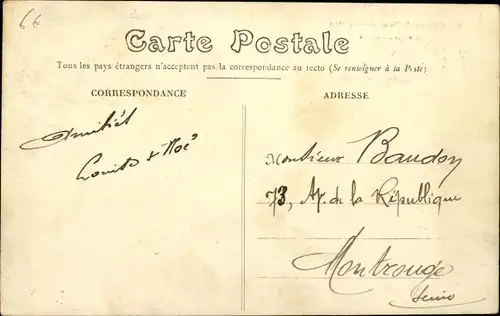 6€
Carte Postale
Tous les pays étrangers n'acceptent pas la correspondance au recto (Se renseigner à la Poste)
CORRESPONDANCE
ADRESSE
Amitiés
Monsieur Baudon
73, Av. de la République
Montrouge
Seine